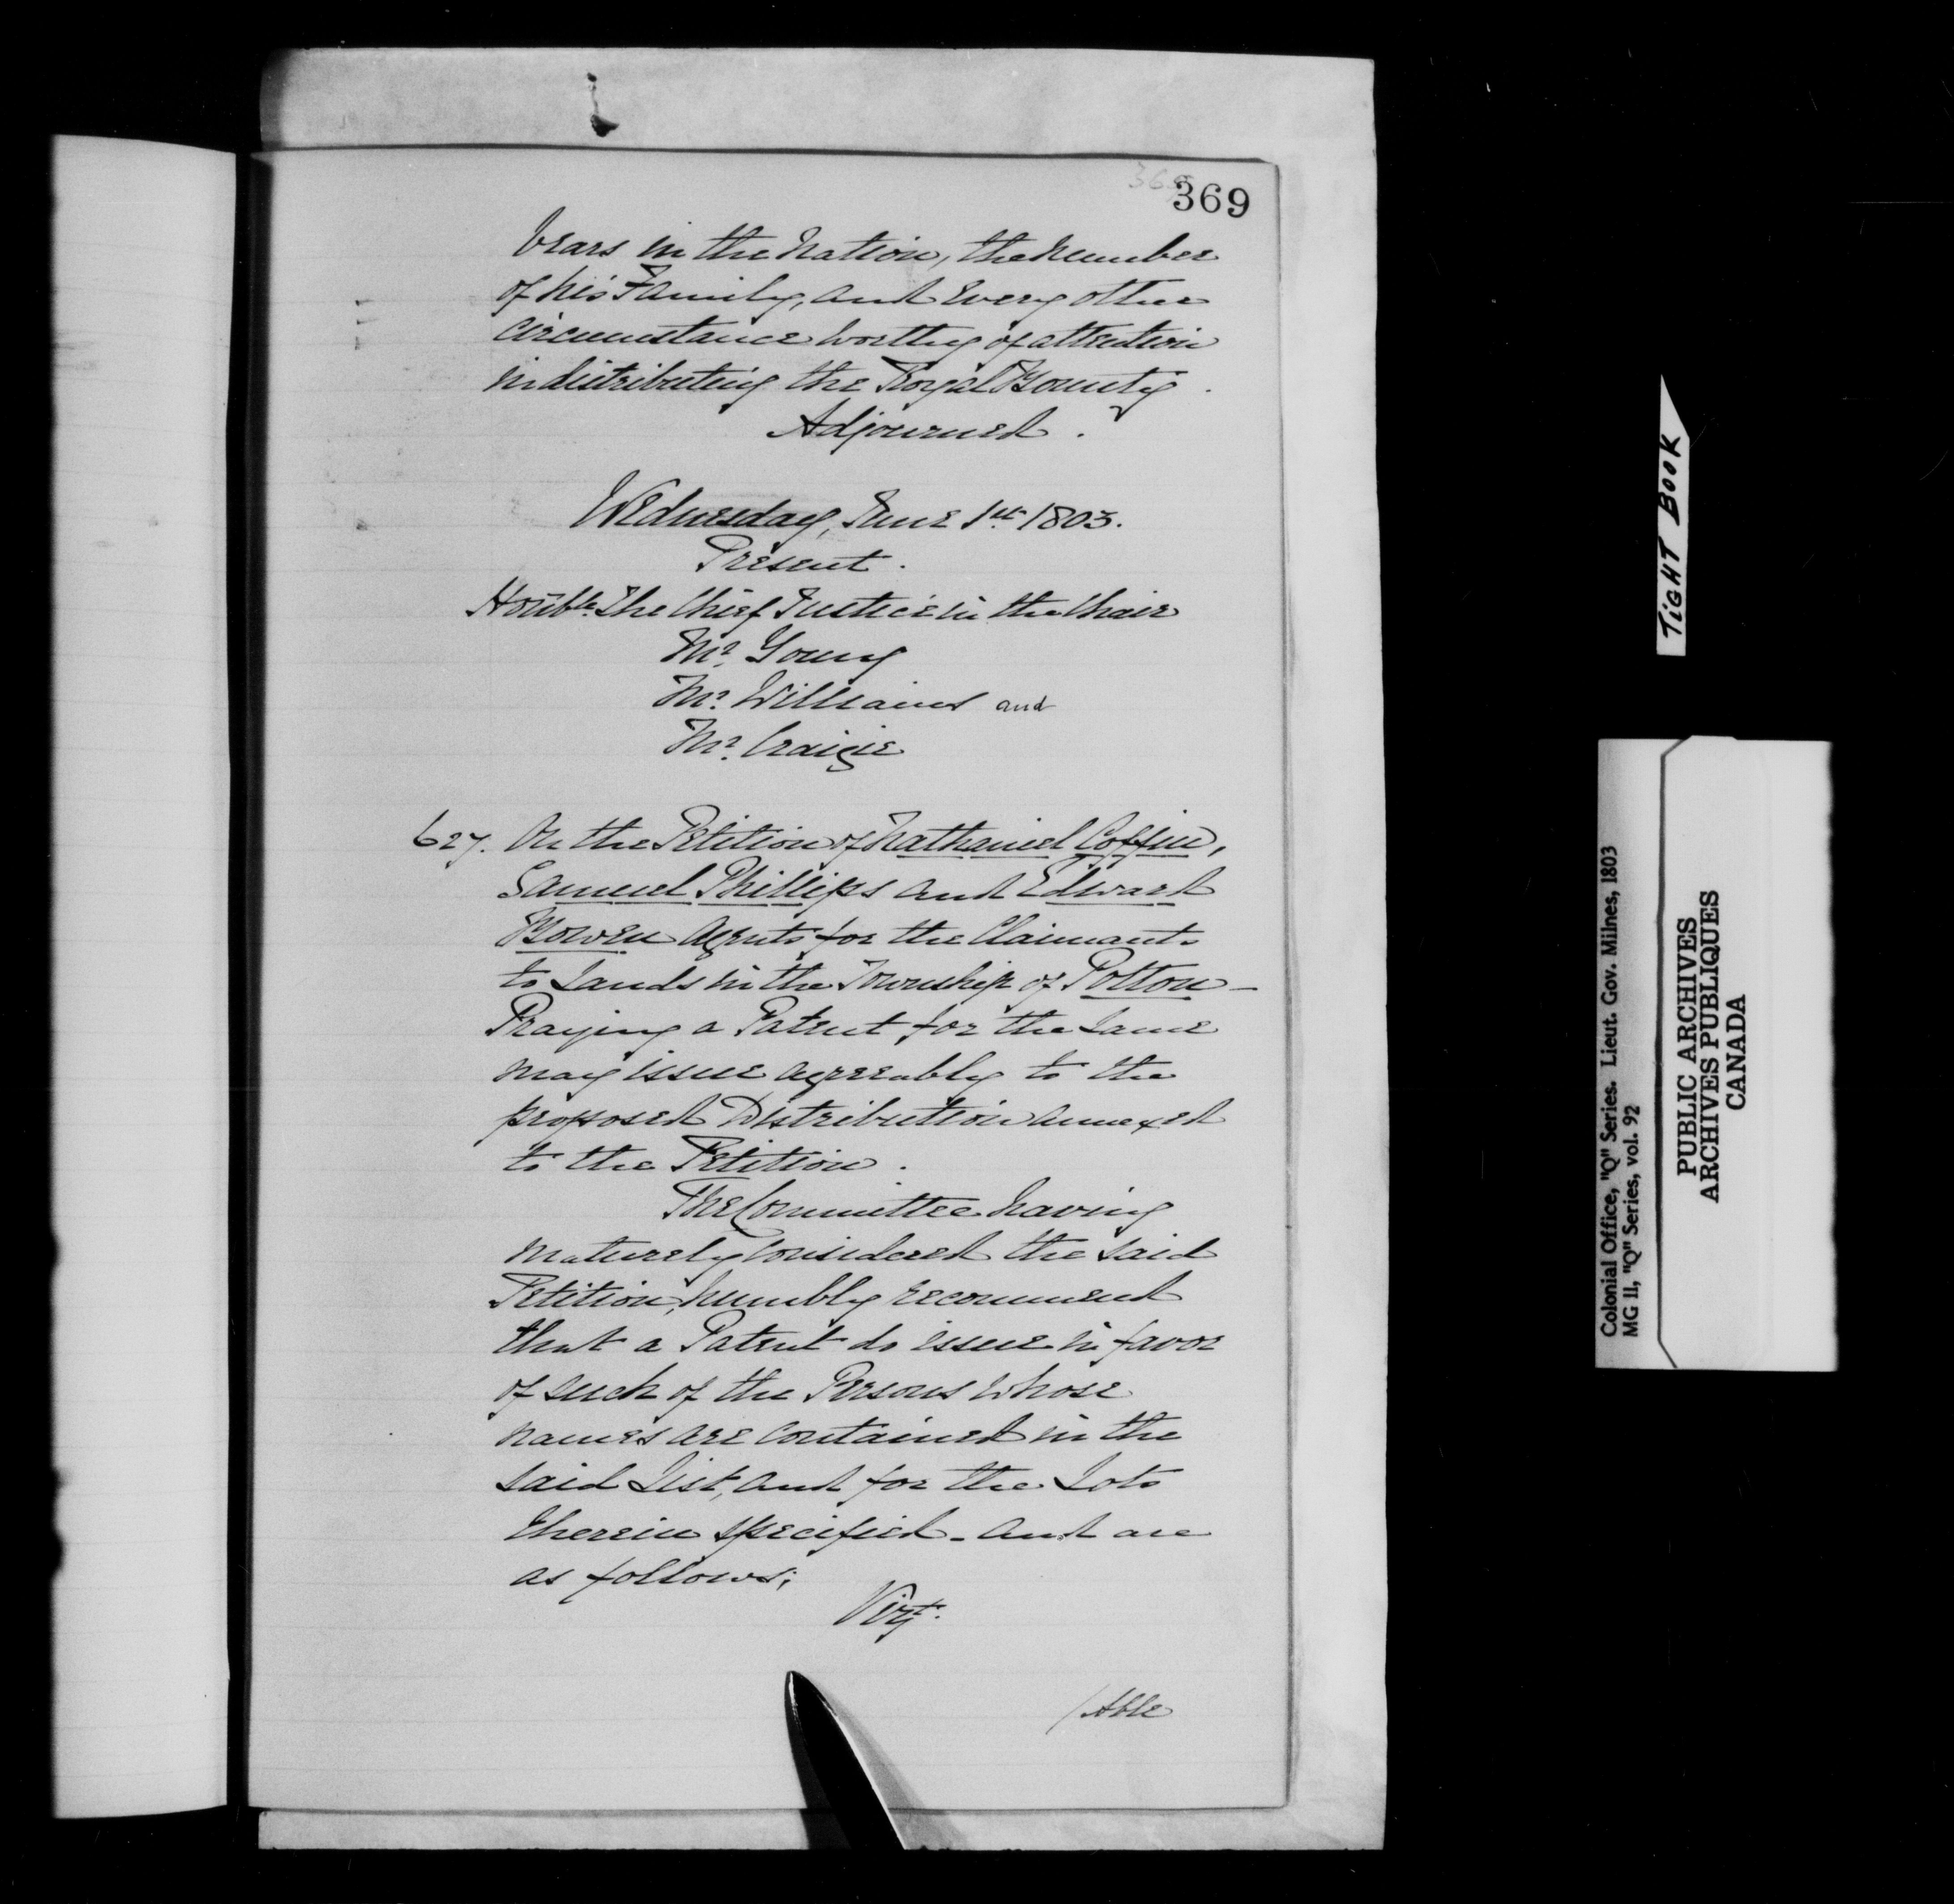 369
bears in the Nation, the number
of his Family, and every other
circumstance worthy of attention
in distributing the Royal Bounty.
Adjourned.
Wednesday, June 1st 1803.
Present.
Honble. The Chief Justice in the Chair
Mr. Young
Mr. Williams and
Mr. Craigie
627. On the Petition of Nathaniel Coffin,
Samuel Phillips and Edward
Bowen Agents for the Claimants
to Lands in the Township of Potton -
Praying a Patent for the same
may issue agreeably to the
proposed Distribution annexed
to the Petition.
The Committee having
maturely considered the said
Petition, humbly recommend
that a Patent do issue in favor
of such of the Persons whose
names are contained in the
said List, and for the Lots
therein specified - and are
as follows;
Vizt.
/Able
TIGHT BOOK
Colonial Office, "Q" Series. Lieut. Gov. Milnes, 1803
MG 11, "Q" Series, vol. 92
PUBLIC ARCHIVES
ARCHIVES PUBLIQUES
CANADA